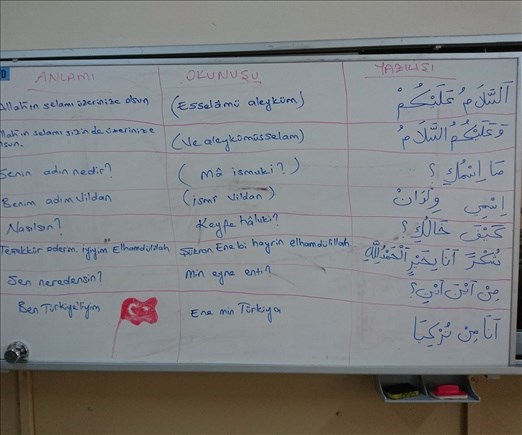 ANLAMI OKUNUŞU YAZILIŞI
Allah'ın selamı üzerinize olsun (Esselâmü aleyküm) اَلسَّلَامُ عَلَيْكُمْ
Allah'ın selamı sizin de üzerinize olsun. (Ve aleykümüsselam) وَعَلَيْكُمُ السَّلَامُ
Senin adın nedir? (Mâ ismuki?) مَا اِسْمُكِ ؟
Benim adım Vildan (ismî vildan) اِسْمِي وِلْدَانْ
Nasılsın? Keyfe hâluki? كَيْفَ حَالُكِ ؟
Teşekkür ederim. iyiyim Elhamdülillah Şükran Ene bi hayrin elhamdülillah شُكْرًا اَنَا بِخَيْرٍ اَلْحَمْدُ لِلَّهِ
Sen neredensin? Min eyne enti? مِنْ اَيْنَ اَنْتِ ؟
Ben Türkiye'liyim Ene min Türkiya اَنَا مِنْ تُرْكِيَا